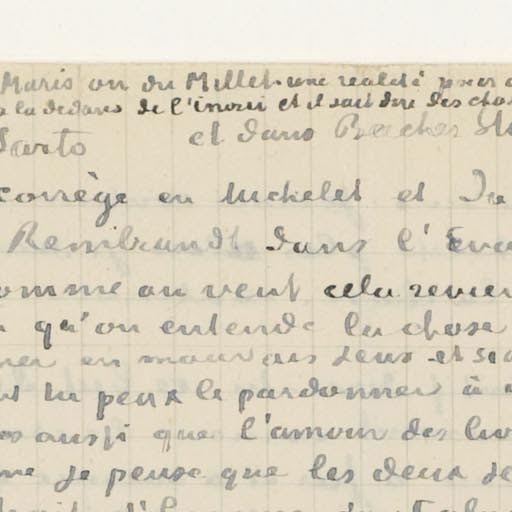 Maris ou du Millet. une realité pour a
a la dedans de l'inoui et il sait dire des chos
Sarto et dans Beecher Sto
corrège en Michelet et Du
Rembrandt dans l'Evan
omme on veut cela revien
qu'on entende la chose
en mauvais sens et si o
tu peux le pardonner à
aussi que l'amour des liv
me je pense que les deux se